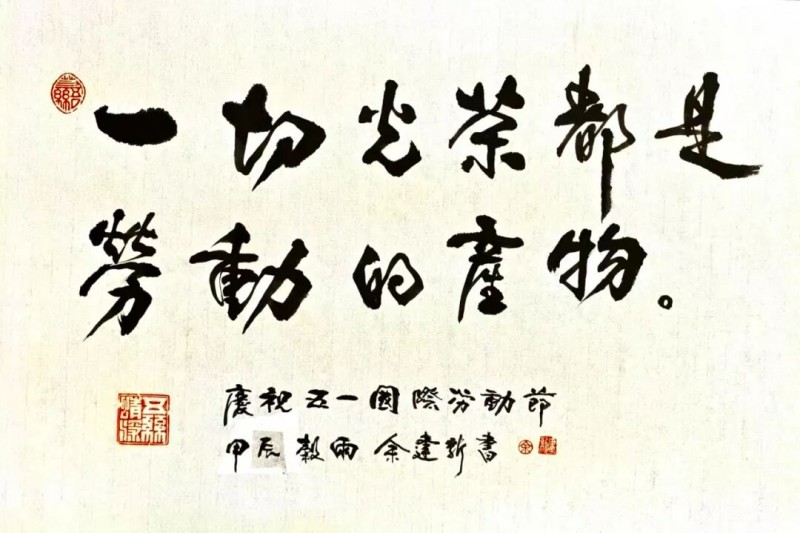 一切光荣都是
勞動的產物。
慶祝五一國際労動節
甲辰榖雨余建新書